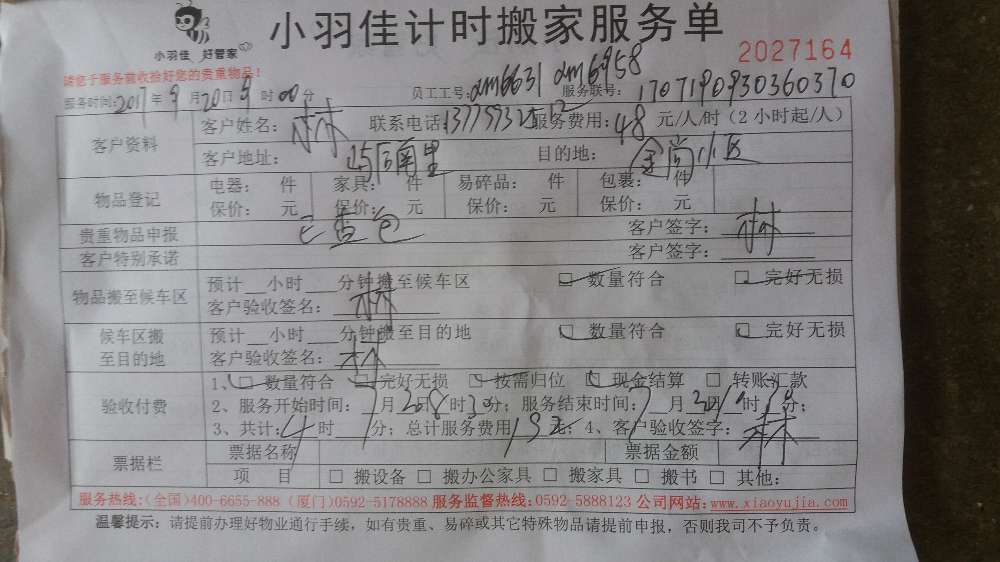 小羽佳计时搬家服务单
小羽佳 好管家
2027164
请您于服务前收捡好您的贵重物品！
服务时间：2017年9月20日9时00分 员工工号：am6631 am6958 服务联号：1707190930360370
客户资料 客户姓名：林 联系电话： 服务费用：48元/人/时（2小时起/人）
客户地址： 目的地：金尚小区
物品登记 电器： 件 家具： 件 易碎品： 件 包裹： 件
保价： 元 保价： 元 保价： 元 保价： 元
贵重物品申报 已查包 客户签字：林
客户特别承诺 客户签字：
物品搬至候车区 预计__小时__分钟搬至候车区 数量符合 完好无损
客户验收签名：林
候车区搬至目的地 预计__小时__分钟搬至目的地 数量符合 完好无损
客户验收签名：林
验收付费 1、 数量符合 完好无损 按需归位 现金结算 转账汇款
2、服务开始时间： 月 日 时 分；服务结束时间： 月 日 时 分；
3、共计：4时 分；总计服务费用 元；4、客户验收签字：林
票据栏 票据名称 票据金额
项 目 搬设备 搬办公家具 搬家具 搬书 其他：
服务热线：（全国）400-6655-888（厦门）0592-5178888 服务监督热线：0592-5888123 公司网站：www.xiaoyujia.com
温馨提示：请提前办理好物业通行手续，如有贵重、易碎或其它特殊物品请提前申报，否则我司不予负责。